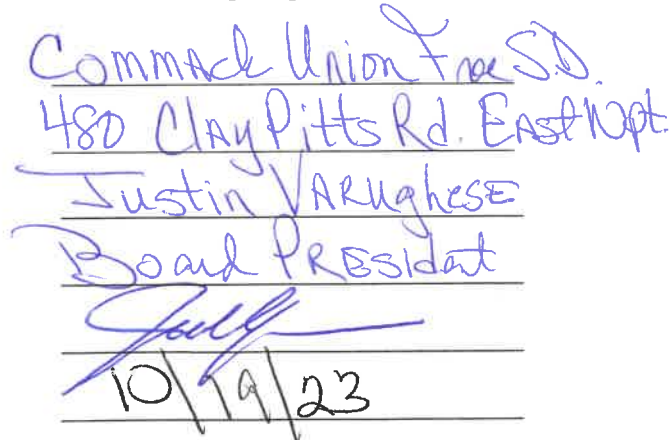 Commack Union Free S.D.
480 Clay Pitts Rd. East Npt.
Justin Varughese
Board President
10/19/23